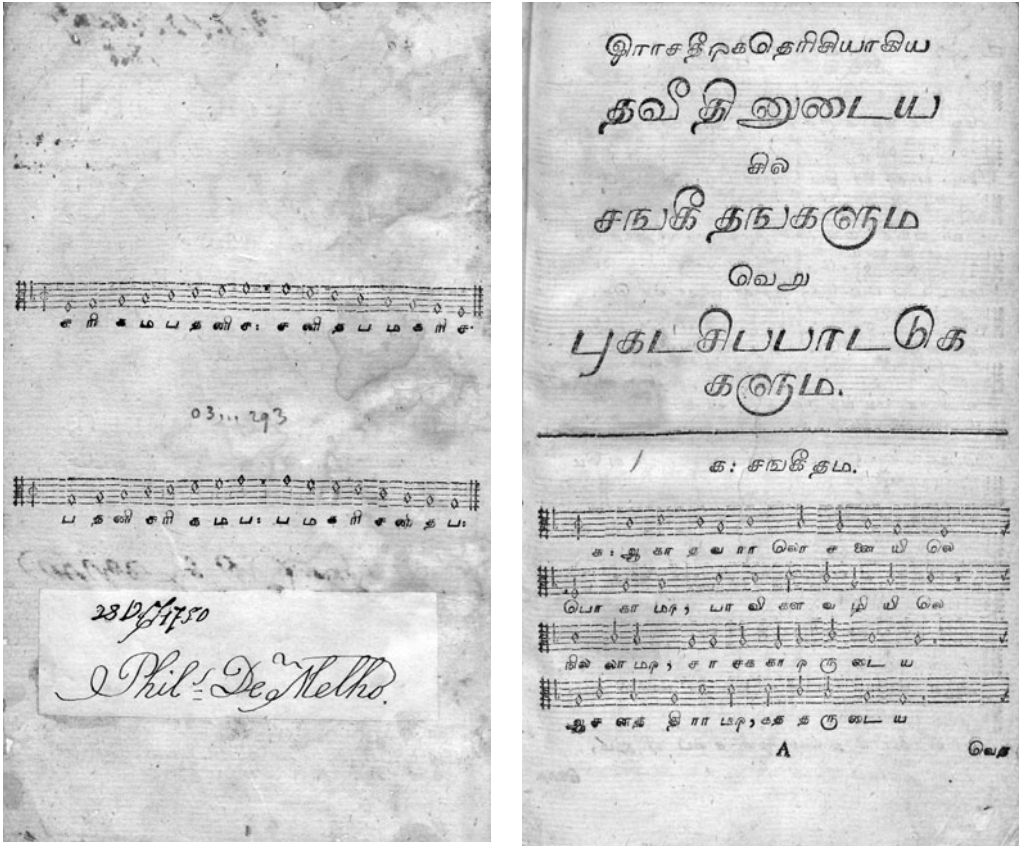 ச ரி க ம ப த னி ச: ச னி த ப ம க ரி ச.
03... 293
ப த னி ச ரி க ம ப: ப ம க ரி ச னி த ப:
28 1750
Phil.s De Melho.
இராசதீறகதெரிசியாகிய
தவீதினுடைய
சில
சஙகீதஙகளும
வெறு
புகட்சிபபாடடுக
களும.
க: சஙகீதம.
க: ஆ கா த வ ரா லொ ச னை யி லெ
பொ கா மடி, பா வி கள வ ழி யி லெ
நில லா மடி, ச ா சக கா டி ரு டை ய
ஆ ச னத தி ரா மடி, கத த ரு டை ய
A